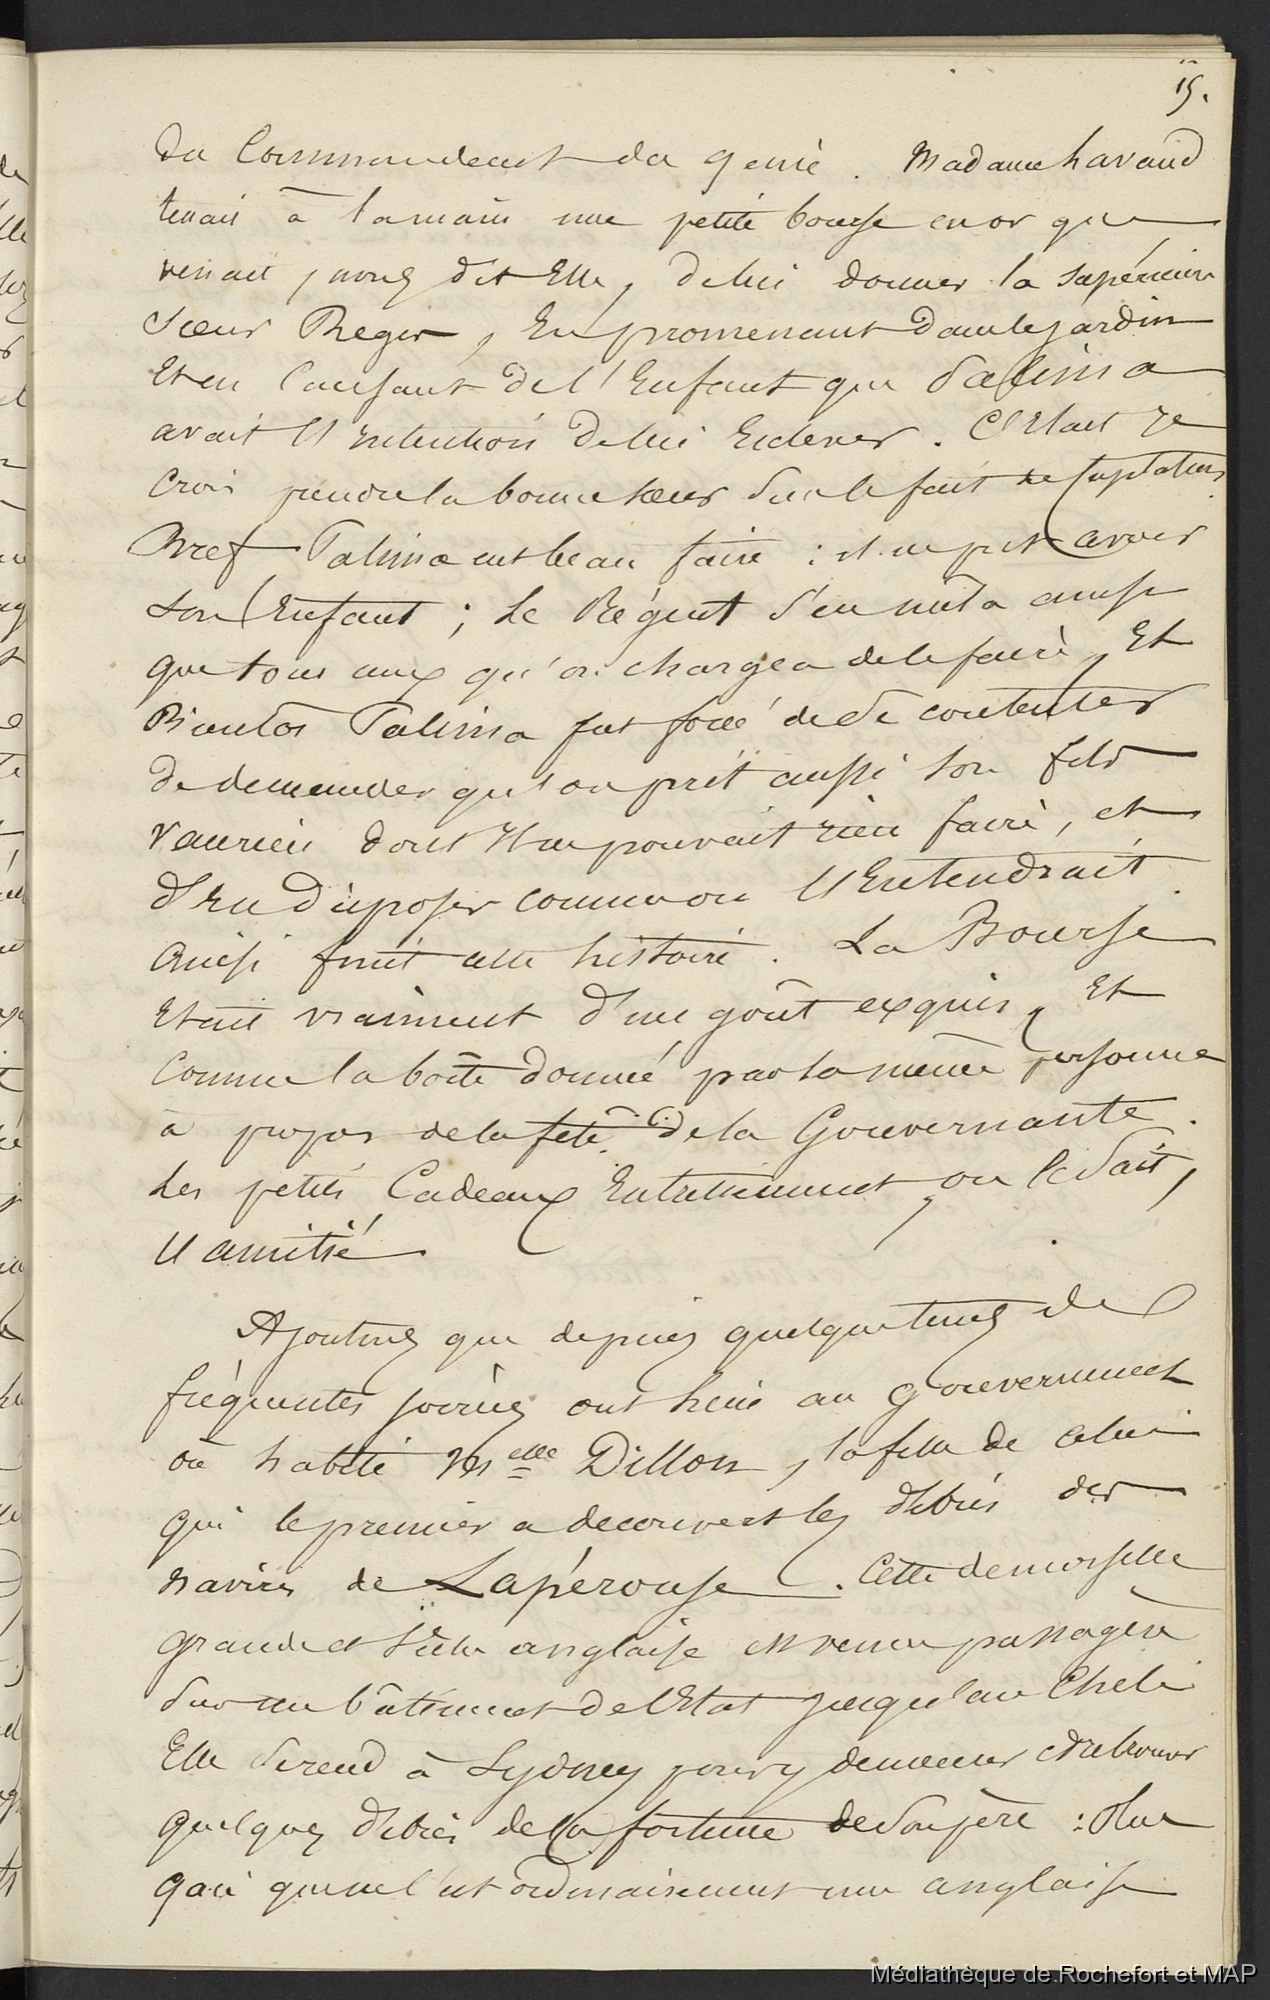 15.
du Commandant du génie. Madame havaud
tenait à la main une petite bourse en or que
venait, nous dit Elle, de lui donner la supérieure
Sœur Regis, En promenant dans le jardin
Et en Causant de l'Enfant que Salima
avait l'intention de lui Enlever. C'Etait je
Crois prendre la bonne sœur sur le fait de Captation
Bref Palima eut beau faire : il ne put avoir
son Enfant ; Le Régent s'en mêla ainsi
que tous ceux qu'on chargea de le faire, Et
Bientôt Palima fut forcé de se contenter
de demander qu'on prit aussi son fils
vaurien dont Il ne pouvait rien faire, et
d'En disposer comme on l'Entendrait.
Ainsi finit cette histoire. La Bourse
Etait vraiment d'un goût exquis, Et
Comme la boîte donnée par la même personne
à propos de la fête de la Gouvernante.
Les petits Cadeaux Entretiennent, on le sait,
l'amitié.
Ajoutons que depuis quelque tems de
fréquentes soirées ont lieu au gouvernement
où habite Melle Dillon, la fille de celui
qui le premier a découvert les débris des
navires de Lapérouse. Cette demoiselle
grande et belle anglaise est venue passagère
sur un bâtiment de l'Etat jusqu'au Chili
Elle se rend à Sydney pour y demeurer et retrouver
quelques débris de la fortune de son père : Plus
gaie que ne l'est ordinairement une anglaise
Médiathèque de Rochefort et MAP